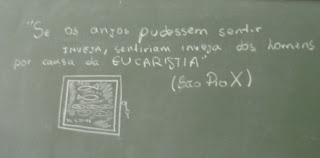 "Se os anjos pudessem sentir
INVEJA, sentiriam inveja dos homens
por causa da EUCARISTIA"
(São Pio X)